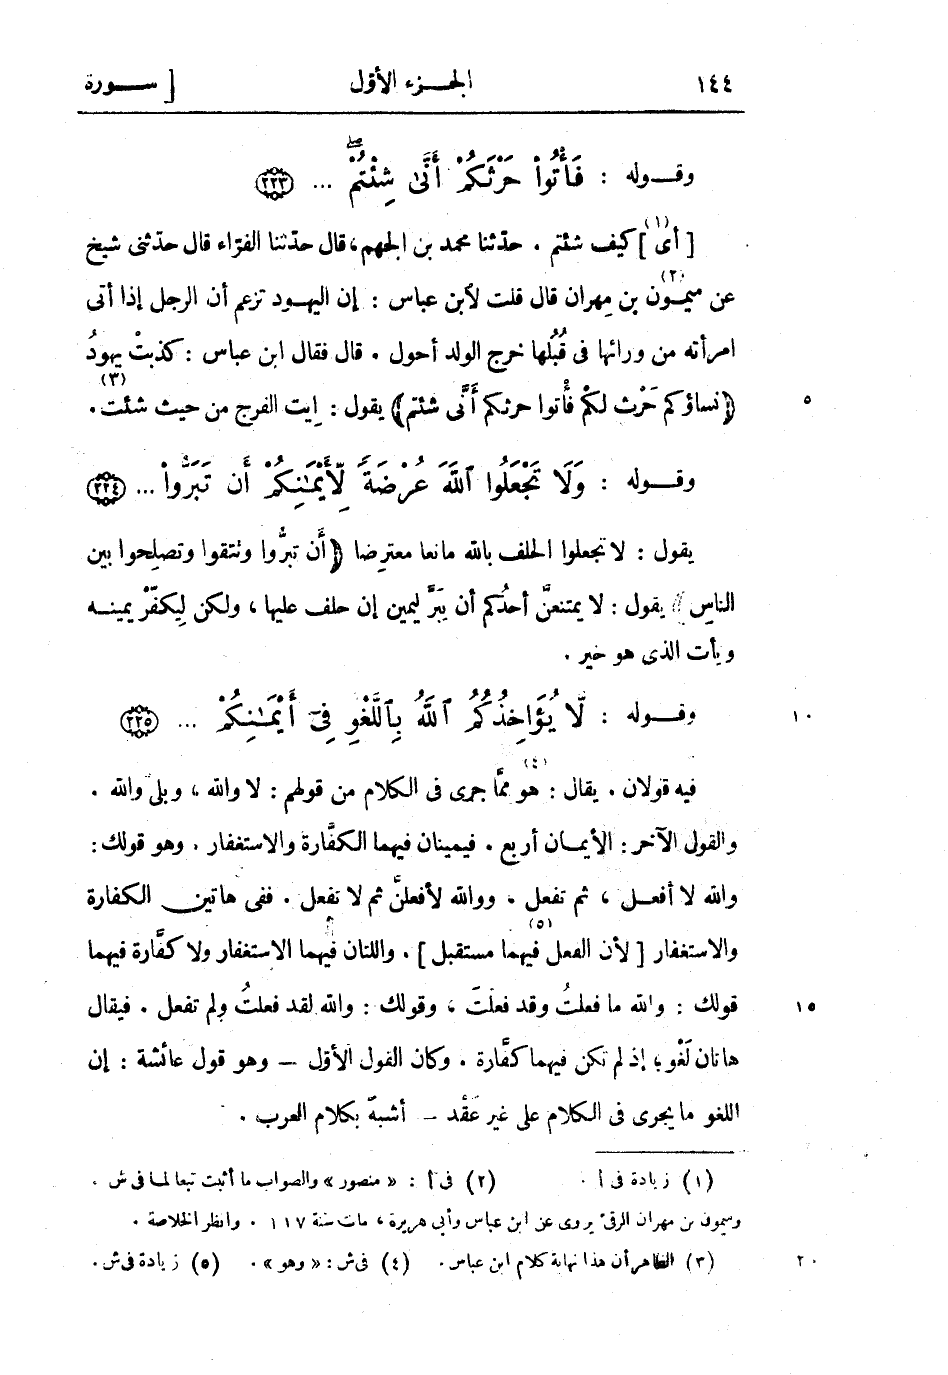 ١٤٤ الجزء الأول [ سورة
وقوله : فَأْتُوا۟ حَرْثَكُمْ أَنَّىٰ شِئْتُمْ ۖ ... ﴿٢٢٣﴾
[ أى ](١) كيف شئتم . حدثنا محمد بن الجهم، قال حدثنا الفرّاء قال حدثنى شيخ
عن ميمون(٢) بن مِهران قال قلت لابن عباس : إن اليهود تزعم أن الرجل إذا أتى
امرأته من ورائها فى قُبُلها خرج الولد أحول . قال فقال ابن عباس : كذبتْ يهودُ
﴿ نساؤكم حَرْث لكمْ فأْتوا حرثكم أَنَّى شئتم ﴾ يقول : إيت الفرج(٣) من حيث شئت . ٥
وقوله : وَلَا تَجْعَلُوا۟ ٱللَّهَ عُرْضَةً لِّأَيْمَـٰنِكُمْ أَن تَبَرُّوا۟ ... ﴿٢٢٤﴾
يقول : لا تجعلوا الحلف بالله مانعا معترِضا ﴿ أَن تبرُّوا وتتقوا وتصلِحوا بين
الناس ﴾ يقول : لا يمتنعنَّ أحدُكم أن يَبَرَّ ليمين إن حلف عليها ، ولكن لِيكفّرْ يمينه
ويأت الذى هو خير .
وقوله : لَّا يُؤَاخِذُكُمُ ٱللَّهُ بِٱللَّغْوِ فِىٓ أَيْمَـٰنِكُمْ ... ﴿٢٢٥﴾ ١٠
فيه قولان . يقال : هو(٤) ممَّا جرى فى الكلام من قولهم : لا والله ، وبلى والله .
والقول الآخر : الأيمان أربع . فيمينان فيهما الكفَّارة والاستغفار . وهو قولك :
والله لا أفعل ، ثم تفعل . ووالله لأفعلنَّ ثم لا تفعل . ففى هاتين الكفارة
والاستغفار [ لأن الفعل فيهما(٥) مستقبل ] . واللتان فيهما الاستغفار ولا كفَّارة فيهما
قولك : والله ما فعلتُ وقد فعلتَ ، وقولك : والله لقد فعلتُ ولم تفعل . فيقال ١٥
هاتان لَغْو؛ إذ لم تكن فيهما كفَّارة . وكان القول الأوّل – وهو قول عائشة : إن
اللغو ما يجرى فى الكلام على غير عَقْد – أشبهَ بكلام العرب .
(١) زيادة فى أ . (٢) فى أ : « منصور » والصواب ما أثبت تبعا لما فى ش .
وميمون بن مهران الرقىّ يروى عن ابن عباس وأبى هريرة ، مات سنة ١١٧ . وانظر الخلاصة .
(٣) الظاهر أن هذا نهاية كلام ابن عباس . (٤) فى ش : « وهو » . (٥) زيادة فى ش . ٢٠